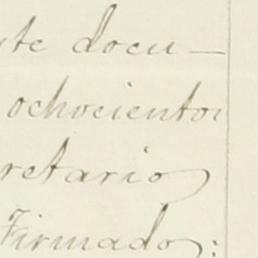 te docu-
ochocientos
retario
Firmado: